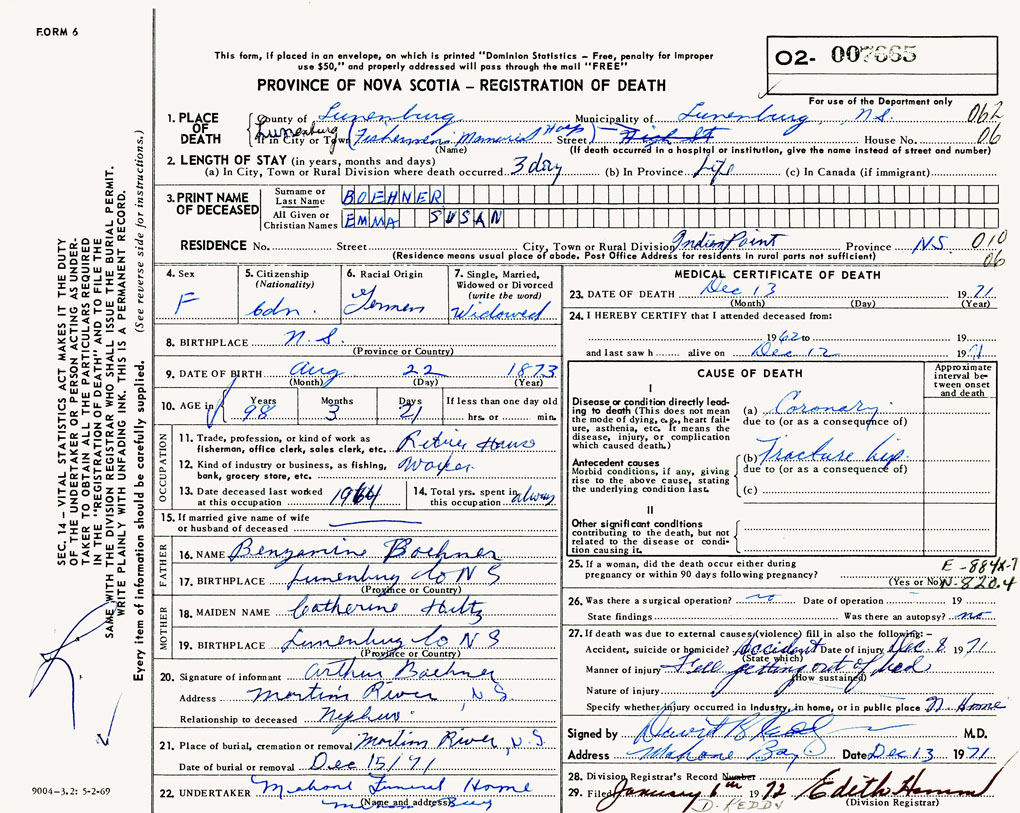 FORM 6
This form, if placed in an envelope, on which is printed "Dominion Statistics – Free, penalty for improper
use $50," and properly addressed will pass through the mail "FREE"
PROVINCE OF NOVA SCOTIA – REGISTRATION OF DEATH
O2- 007665
For use of the Department only
1. PLACE OF DEATH
County of Lunenburg Municipality of Lunenburg, N.S. 062
Lunenburg
If in City or Town Fishermens Memorial Hosp Street High St House No. 06
(Name) (If death occurred in a hospital or institution, give the name instead of street and number)
2. LENGTH OF STAY (in years, months and days)
(a) In City, Town or Rural Division where death occurred 3 day (b) In Province Life (c) In Canada (if immigrant)
3. PRINT NAME OF DECEASED
Surname or Last Name BOEHNER
All Given or Christian Names EMMA SUSAN
RESIDENCE No. Street City, Town or Rural Division Indian Point Province N.S. 010
(Residence means usual place of abode. Post Office Address for residents in rural parts not sufficient) 06
4. Sex F
5. Citizenship (Nationality) Cdn.
6. Racial Origin German
7. Single, Married, Widowed or Divorced (write the word) Widowed
8. BIRTHPLACE N.S.
(Province or Country)
9. DATE OF BIRTH Aug 22 1873
(Month) (Day) (Year)
10. AGE in Years 98 Months 3 Days 21 If less than one day old hrs. or min.
OCCUPATION
11. Trade, profession, or kind of work as fisherman, office clerk, sales clerk, etc. Retired House
12. Kind of industry or business, as fishing, bank, grocery store, etc.
13. Date deceased last worked at this occupation 1964
14. Total yrs. spent in this occupation always
15. If married give name of wife or husband of deceased
FATHER
16. NAME Benjamine Boehner
17. BIRTHPLACE Lunenburg Co N S
(Province or Country)
MOTHER
18. MAIDEN NAME Catherine Hultz
19. BIRTHPLACE Lunenburg Co N S
(Province or Country)
20. Signature of informant Arthur Boehner
Address Martins River, N.S.
Relationship to deceased Nephew
21. Place of burial, cremation or removal Martins River, N.S.
Date of burial or removal Dec 15/71
22. UNDERTAKER Mahone Funeral Home
(Name and address) Mahone Bay
MEDICAL CERTIFICATE OF DEATH
23. DATE OF DEATH Dec 13 1971
(Month) (Day) (Year)
24. I HEREBY CERTIFY that I attended deceased from:
1962 to 19
and last saw h alive on Dec 12 1971
CAUSE OF DEATH
Approximate interval between onset and death
I
Disease or condition directly leading to death (This does not mean the mode of dying, e.g., heart failure, asthenia, etc. It means the disease, injury, or complication which caused death.)
(a) Coronary
due to (or as a consequence of)
Antecedent causes
Morbid conditions, if any, giving rise to the above cause, stating the underlying condition last.
(b) Fracture hip.
due to (or as a consequence of)
(c)
II
Other significant conditions contributing to the death, but not related to the disease or condition causing it.
25. If a woman, did the death occur either during pregnancy or within 90 days following pregnancy?
(Yes or No)
E-884X-7
N-820.4
26. Was there a surgical operation? no Date of operation 19
State findings Was there an autopsy? no
27. If death was due to external causes (violence) fill in also the following:–
Accident, suicide or homicide? Accident Date of injury Dec 8 1971
(State which)
Manner of injury Fall getting out of bed
(How sustained)
Nature of injury
Specify whether injury occurred in Industry, in home, or in public place N. Home
Signed by M.D.
Address Mahone Bay Date Dec 13 1971
28. Division Registrar's Record Number
29. Filed January 6th 1972 Edith
D. KEDDY (Division Registrar)
SEC. 14 – VITAL STATISTICS ACT MAKES IT THE DUTY
OF THE UNDERTAKER OR PERSON ACTING AS UNDER-
TAKER TO OBTAIN ALL THE PARTICULARS REQUIRED
IN THE "REGISTRATION OF DEATH" AND TO FILE THE
SAME WITH THE DIVISION REGISTRAR WHO SHALL ISSUE THE BURIAL PERMIT.
WRITE PLAINLY WITH UNFADING INK. THIS IS A PERMANENT RECORD.
Every item of information should be carefully supplied. (See reverse side for instructions.)
9004-3.2: 5-2-69